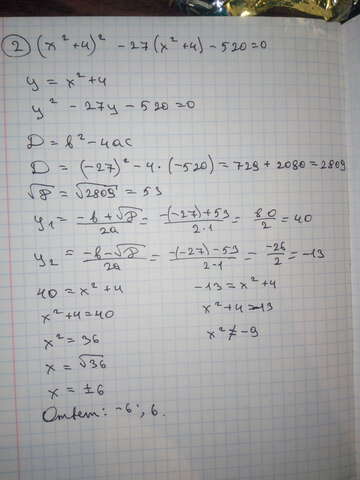 2 (x² + 4)² - 27(x² + 4) - 520 = 0
y = x² + 4
y² - 27y - 520 = 0
D = b² - 4ac
D = (-27)² - 4 · (-520) = 729 + 2080 = 2809
√D = √2809 = 53
y₁ = (-b + √D)/2a = (-(-27) + 53)/(2·1) = 80/2 = 40
y₂ = (-b - √D)/2a = (-(-27) - 53)/(2·1) = -26/2 = -13
40 = x² + 4 -13 = x² + 4
x² + 4 = 40 x² + 4 = -13
x² = 36 x² ≠ -9
x = √36
x = ±6
Ответ: -6; 6.